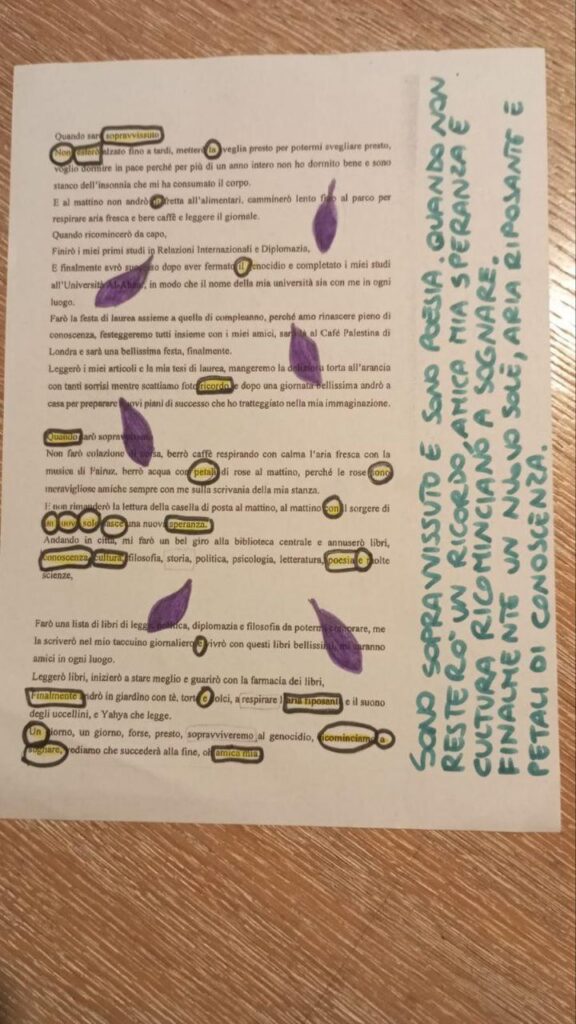 Quando sarò sopravvissuto
Non resterò alzato fino a tardi, metterò la sveglia presto per potermi svegliare presto,
voglio dormire in pace perché per più di un anno intero non ho dormito bene e sono
stanco dell'insonnia che mi ha consumato il corpo.
E al mattino non andrò in fretta all'alimentari, camminerò lento fino al parco per
respirare aria fresca e bere caffè e leggere il giornale.
Quando ricomincerò da capo,
Finirò i miei primi studi in Relazioni Internazionali e Diplomazia,
E finalmente avrò dopo aver fermato il genocidio e completato i miei studi
all'Università Al-Azhar, in modo che il nome della mia università sia con me in ogni
luogo.
Farò la festa di laurea assieme a quella di compleanno, perché amo rinascere pieno di
conoscenza, festeggeremo tutti insieme con i miei amici, sarà al Café Palestina di
Londra e sarà una bellissima festa, finalmente.
Leggerò i miei articoli e la mia tesi di laurea, mangeremo la deliziosa torta all'arancia
con tanti sorrisi mentre scattiamo foto ricordo, e dopo una giornata bellissima andrò a
casa per preparare nuovi piani di successo che ho tratteggiato nella mia immaginazione.
Quando sarò sopravvissuto
Non farò colazione di corsa, berrò caffè respirando con calma l'aria fresca con la
musica di Fairuz, berrò acqua con petali di rose al mattino, perché le rose sono
meravigliose amiche sempre con me sulla scrivania della mia stanza.
E non rimanderò la lettura della casella di posta al mattino, al mattino con il sorgere di
un nuovo sole nasce una nuova speranza.
Andando in città, mi farò un bel giro alla biblioteca centrale e annuserò libri,
conoscenza, cultura, filosofia, storia, politica, psicologia, letteratura, poesia e molte
scienze,
Farò una lista di libri di legge, politica, diplomazia e filosofia da potermi, me
la scriverò nel mio taccuino giornaliero e vivrò con questi libri bellissimi, mi saranno
amici in ogni luogo.
Leggerò libri, inizierò a stare meglio e guarirò con la farmacia dei libri,
Finalmente andrò in giardino con tè, torte e dolci, a respirare l'aria riposante e il suono
degli uccellini, e Yahya che legge.
Un giorno, un giorno, forse, presto, sopravviveremo al genocidio, ricominciamo a
sognare, vediamo che succederà alla fine, oh amica mia
SONO SOPRAVVISSUTO E SONO POESIA. QUANDO NON
RESTERÒ UN RICORDO, AMICA MIA SPERANZA E
CULTURA RICOMINCIANO A SOGNARE.
FINALMENTE UN NUOVO SOLE, ARIA RIPOSANTE E
PETALI DI CONOSCENZA.